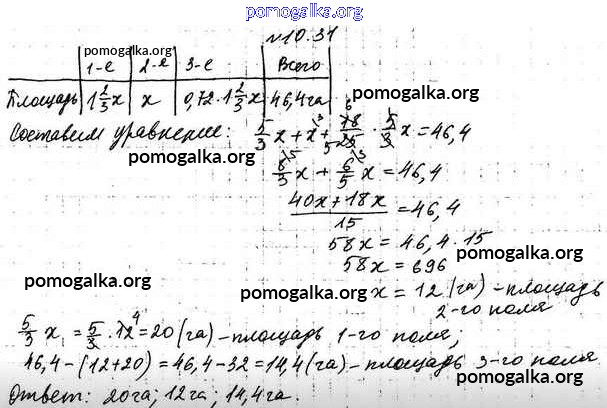 pomogalka.org
№10.31
pomogalka.org
1-е 2-е 3-е Всего
Площадь 1 2/3 x x 0,72·1 2/3 x 46,4 га
pomogalka.org
Составим уравнение: 5/3 x + x + 18/25 · 5/3 x = 46,4
pomogalka.org
8/3 x + 6/5 x = 46,4
(40x+18x)/15 = 46,4
58x = 46,4·15
pomogalka.org
58x = 696
pomogalka.org
x = 12 (га) – площадь
2-го поля
pomogalka.org
5/3 x = 5/3 · 12 = 20 (га) – площадь 1-го поля;
46,4 – (12+20) = 46,4 – 32 = 14,4 (га) – площадь 3-го поля
pomogalka.org
Ответ: 20 га; 12 га; 14,4 га.